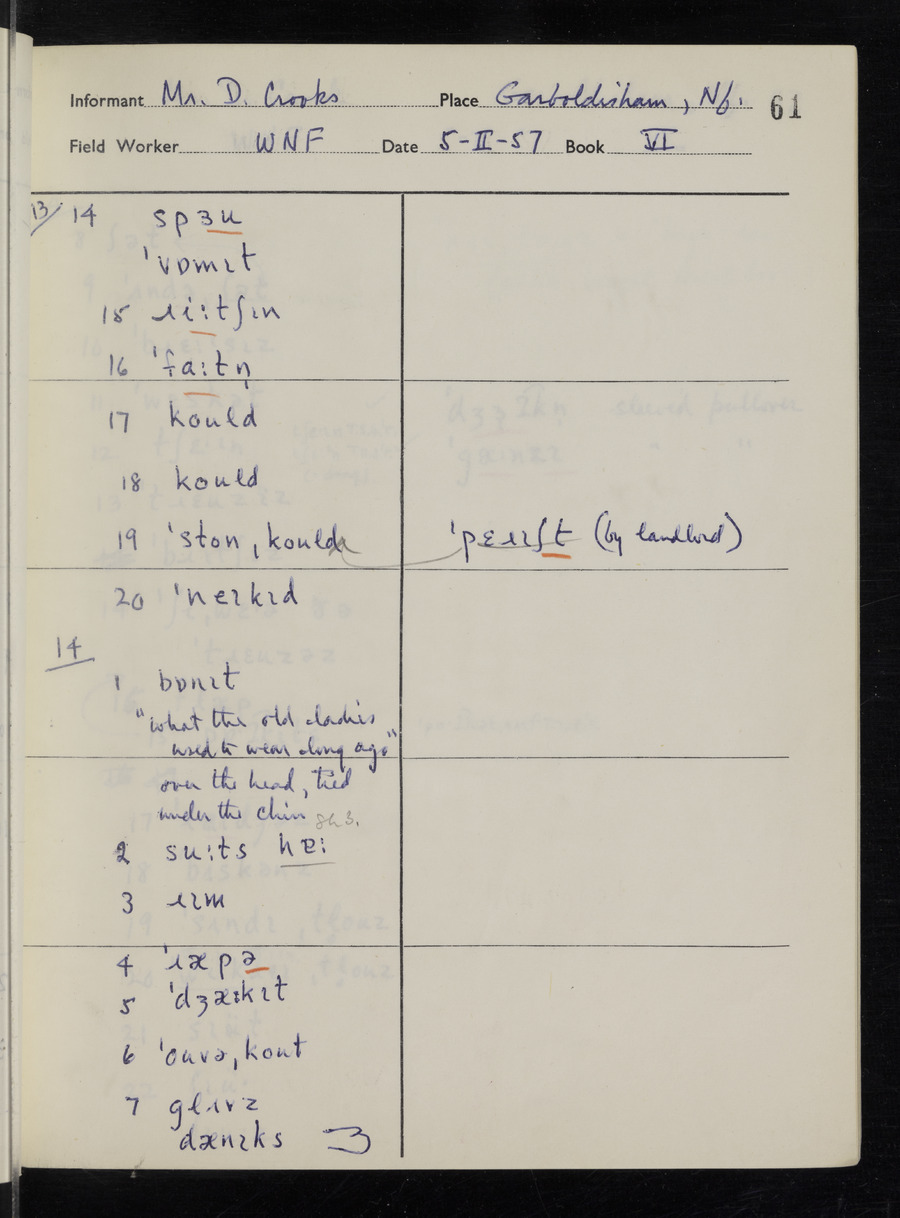 Informant Mr. D. Crooks Place Garboldisham, Nf. 61
Field Worker WNF Date 5-II-57 Book VI
13/ 14 spɜu
ˈvɒmɪt
15 ɹi:tʃɪn
16 ˈfa:tn̩
17 kould
18 kould
19 ˈston,kould ˈpɛɪɹɪʃt (by landlord)
20 ˈneɪkɪd
14
1 bɒnɪt
"what the old ladies
used to wear long ago"
over the head, tied
under the chin
2 su:ts hɐ:
3 ɹɪm
4 ˈɹæpə
5 ˈdʒækɪt
6 ˈouvə,kout
7 glɪvz
dænɪks